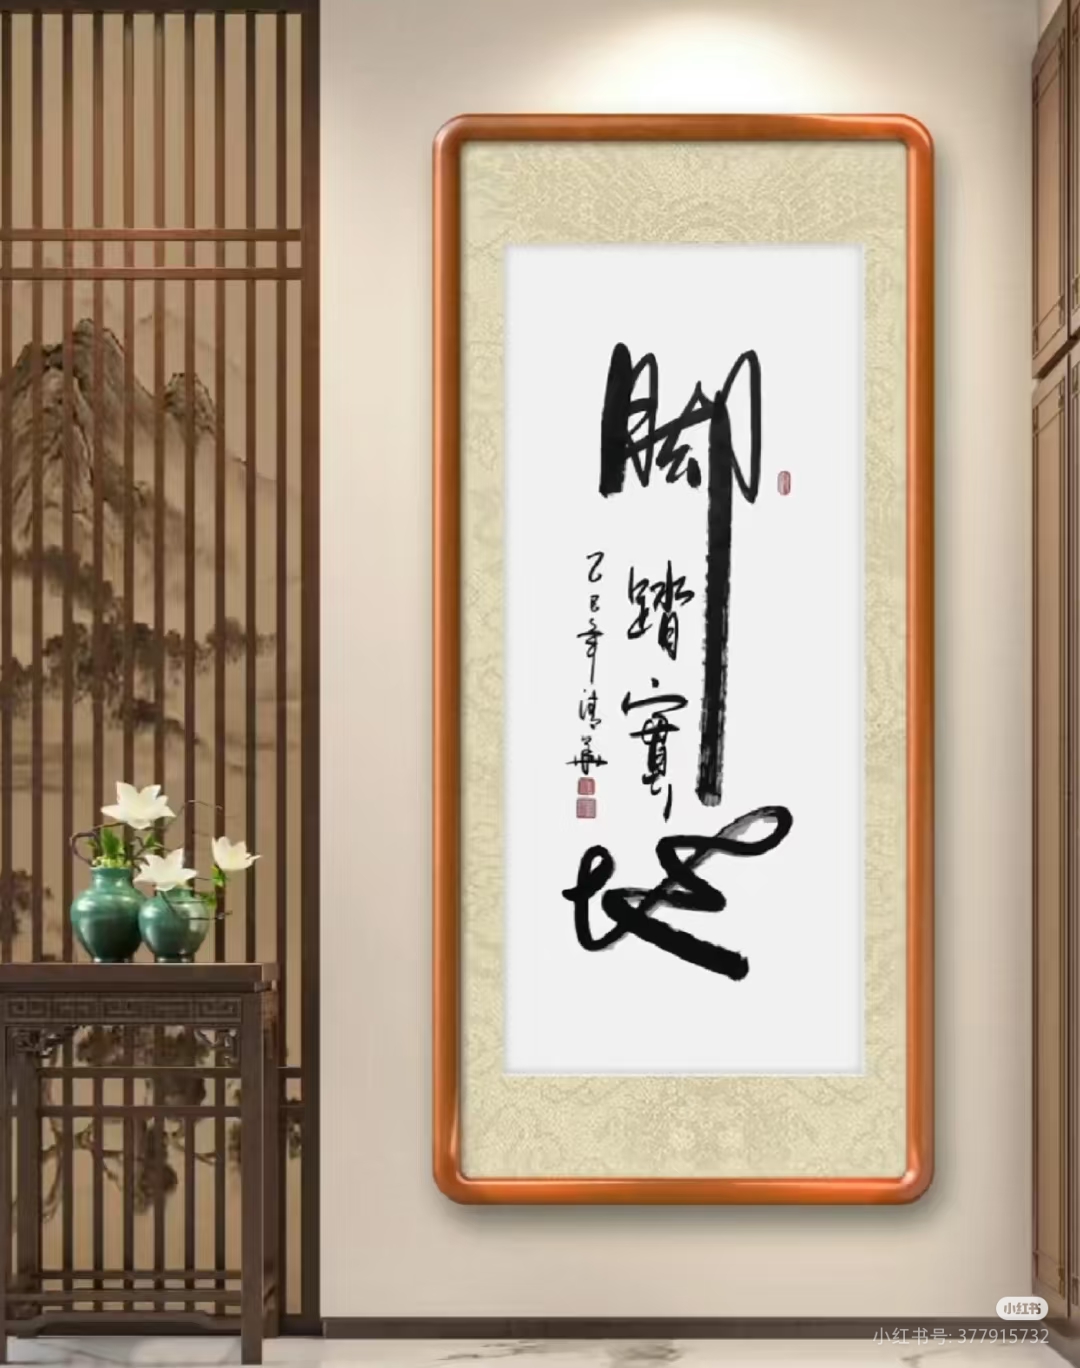 脚踏實地
乙巳年清華
小红书
小红书号: 377915732